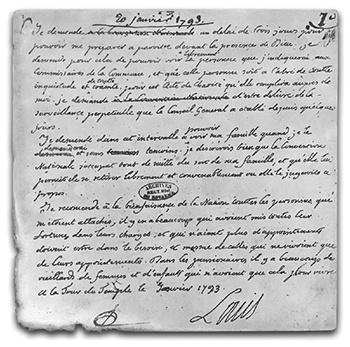 20 janvier 1793.
7e
Je demande un delai de trois jours pour
pouvoir me preparer a paroitre devant la presence de Dieu, je
demande pour cela de pouvoir voir librement la personne que j'indiquerai aux
Commissaires de la Commune, et que cette personne soit a l'abri de toute
inquietude et de toute crainte, pour cet acte de charité qu'elle remplira aupres de
moi. Je demande d'etre delivré de la
surveillance perpetuelle que le Conseil General a etablie depuis quelques
jours.
Je demande dans cet intervalle a pouvoir voir ma famille quand je le
demanderai et sans temoins; je desirerois bien que la Convention
Nationale s'occupat tout de suite du sort de ma famille, et qu'elle lui
permit de se retirer librement et convenablement ou elle le jugeroit a
propos.
ARCHIVES
DU ROYAUME
Je recommende a la bienfaisance de la Nation toutes les personnes qui
m'etoient attachées, il y en a beaucoup qui avoient mis toutes leur
fortunes dans leurs charges, et qui n'aiant plus d'appointements
doivent etre dans le besoin, et mesme de celles qui ne vivoient que
de leurs appointements. Dans les pensionnaires il y a beaucoup de
vieillards de femmes et d'enfants qui n'avoient que cela pour vivre
a la Tour du Temple le Janvier 1793.
Louis